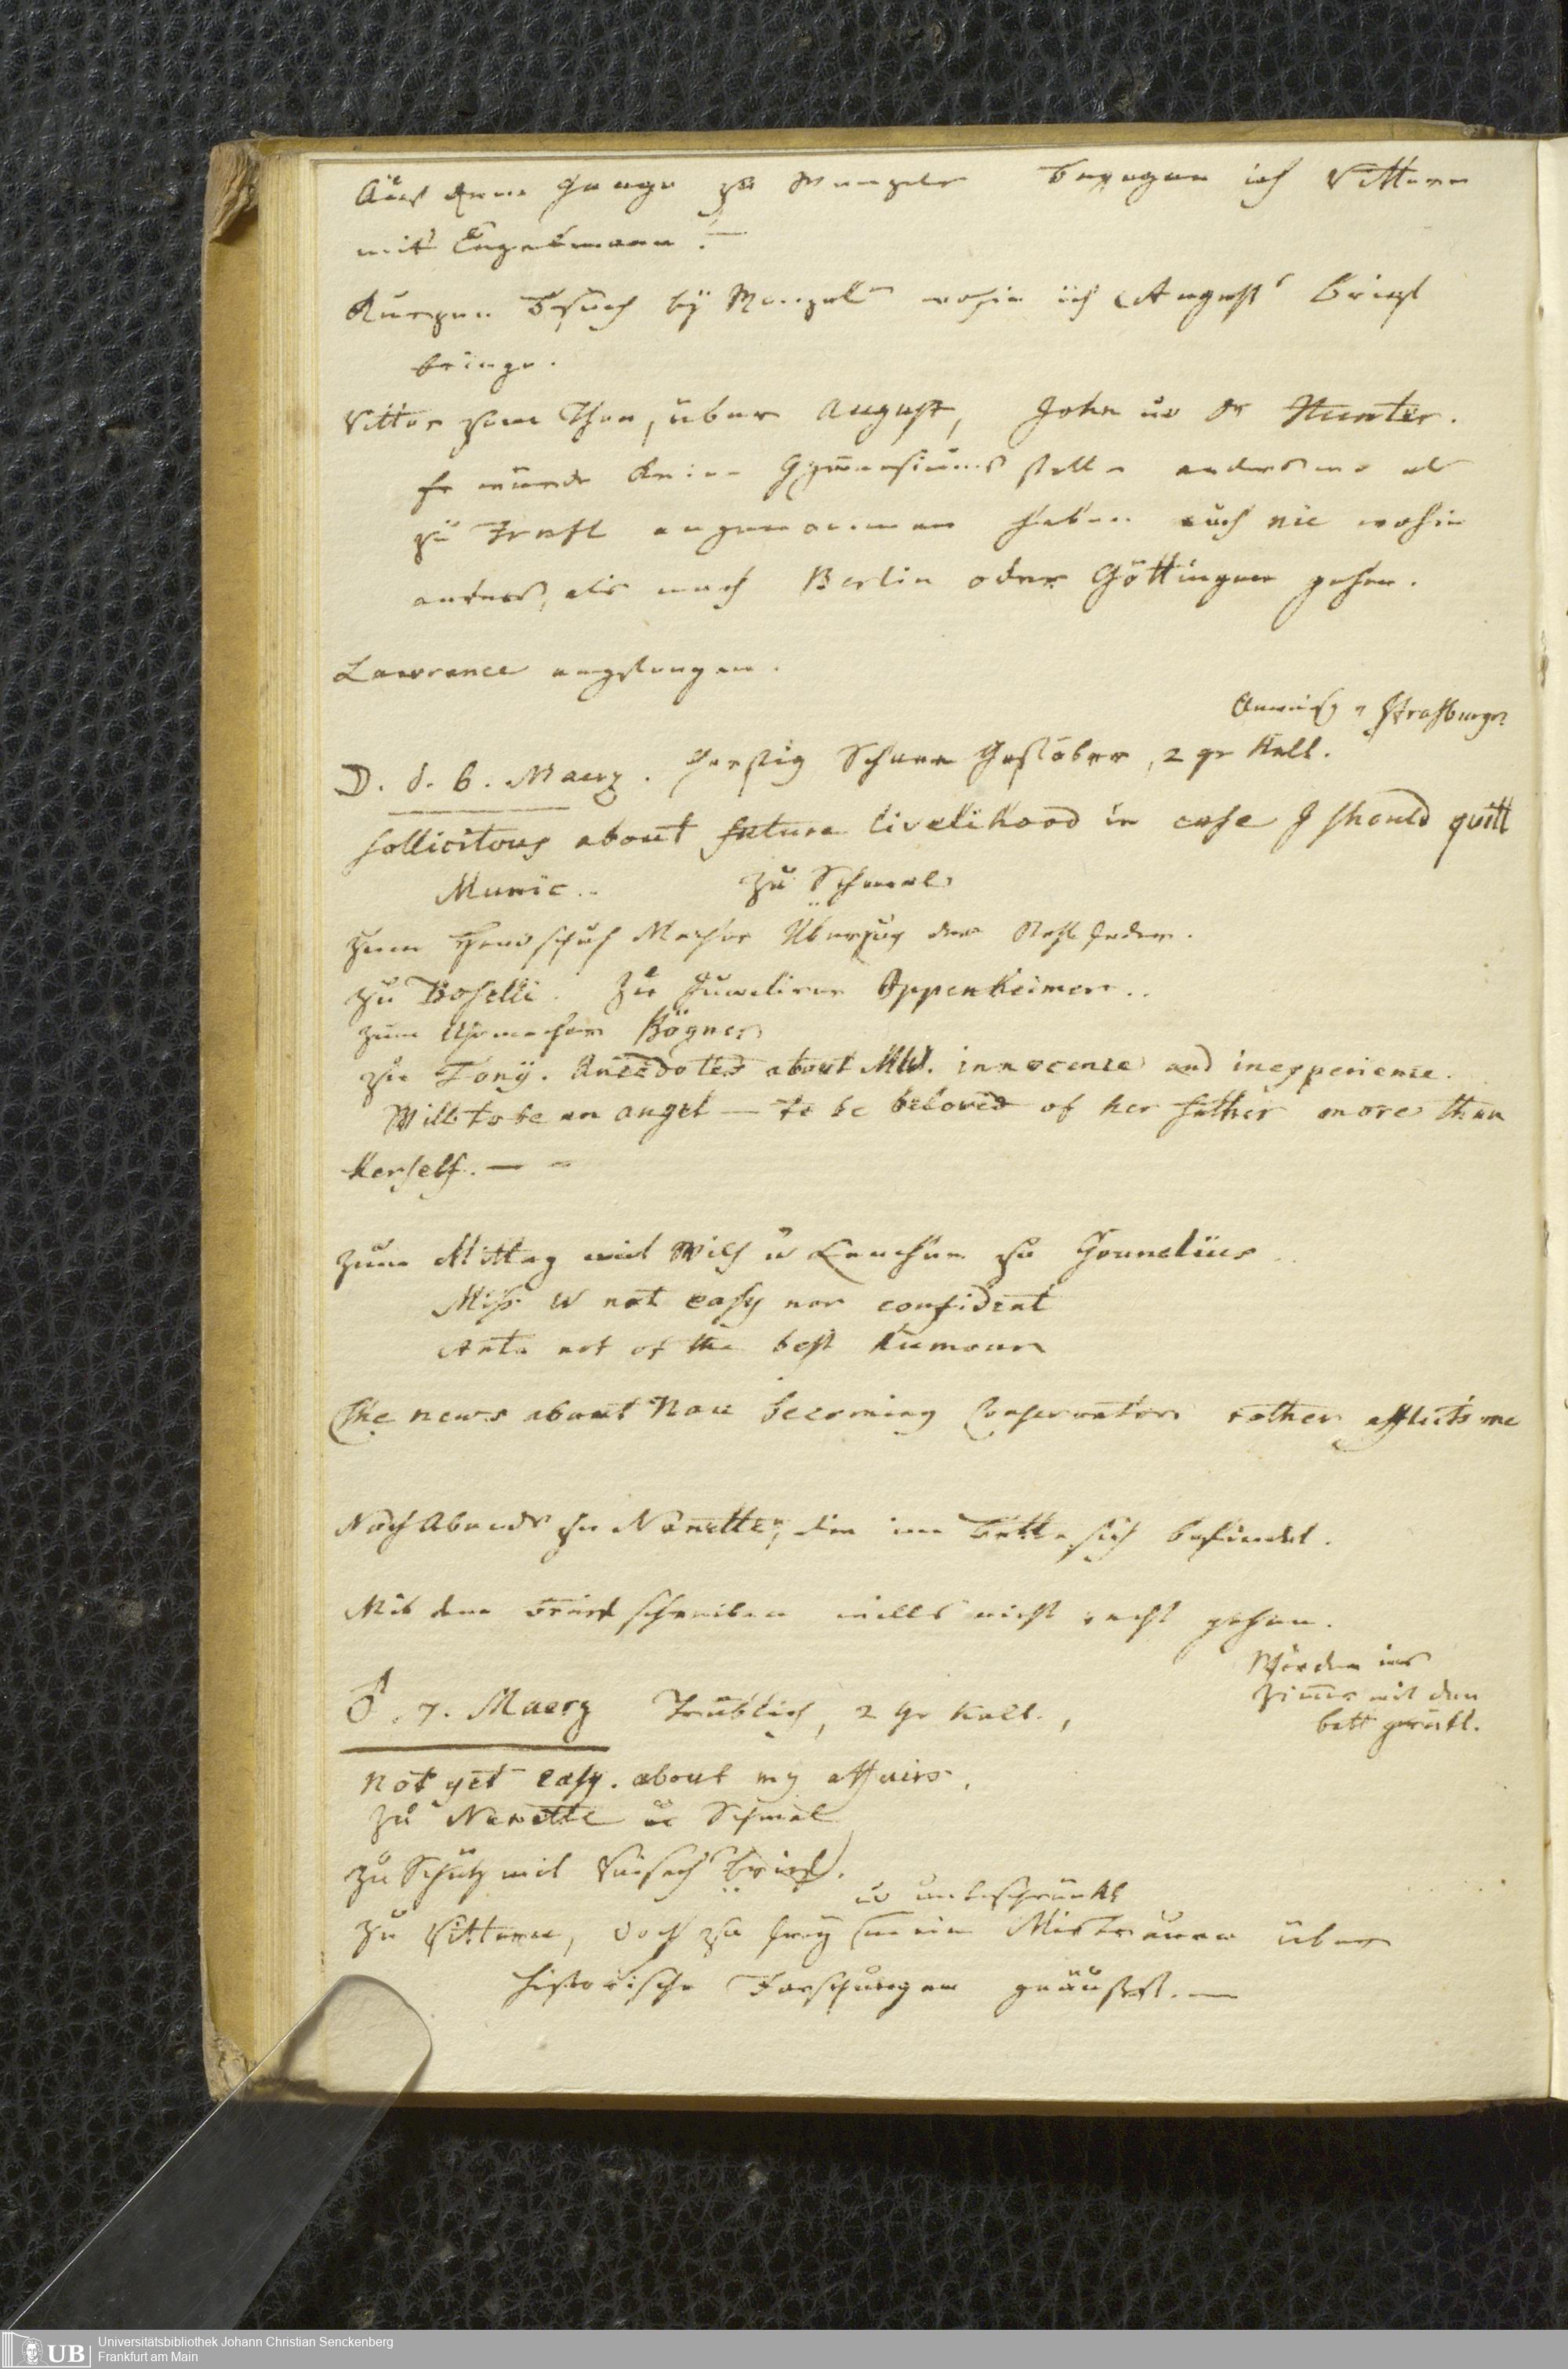 Auf dem Gange zu Wenzel begegne ich Vittern
mit Engelmann!—
Kurzen Besuch by Menzel wohin ich August's Brief
bringe.
Vitter zum Thee, über August, John u Dr Hunter.
Er würde keine Gymnasiums stelle anderswo als
zu angenommen haben auch nie wohin
anders, als nach Berlin oder Göttingen gehen.
Lawrence angefangen.
Strasburger
☽. d. 6. Maerz. Schnee Gestöber, 2 gr Kalt.
sollicitous about future livelihood in case I should quitt
Munic.. Zu Schmal
zum Handschuh Macher Überzug der Stahlfeder.
zu Boselli. Zu Juwelirer Oppenheimer..
zum Uhrmacher Bögner
zu Tony. Anecdotes about MW. innocence and inexperience.
Will to be an angel — to be beloved of her father more than
herself. — –
zum Mittag mit u zu Gounelius
Miss W not easy nor confident
not of the best humour
The news about Nau becoming Conservator rather afflicts me
Nach Abends zu Nanette, die im Bette sich befindet.
Mit dem Brief schreiben wills nicht recht gehen.
♂. 7. Maerz Trüblich, 2 gr Kalt.,
Zimmer mit dem
bett gerückt.
not yet easy. about my affairs.
Zu Nanette u Schmal
zu Schütz mit Brief.
u unbeschränkt
zu Vittern, doch zu frey mein Mistrauen über
historische Forschungen geäussert. —
UB Universitätsbibliothek Johann Christian Senckenberg
Frankfurt am Main